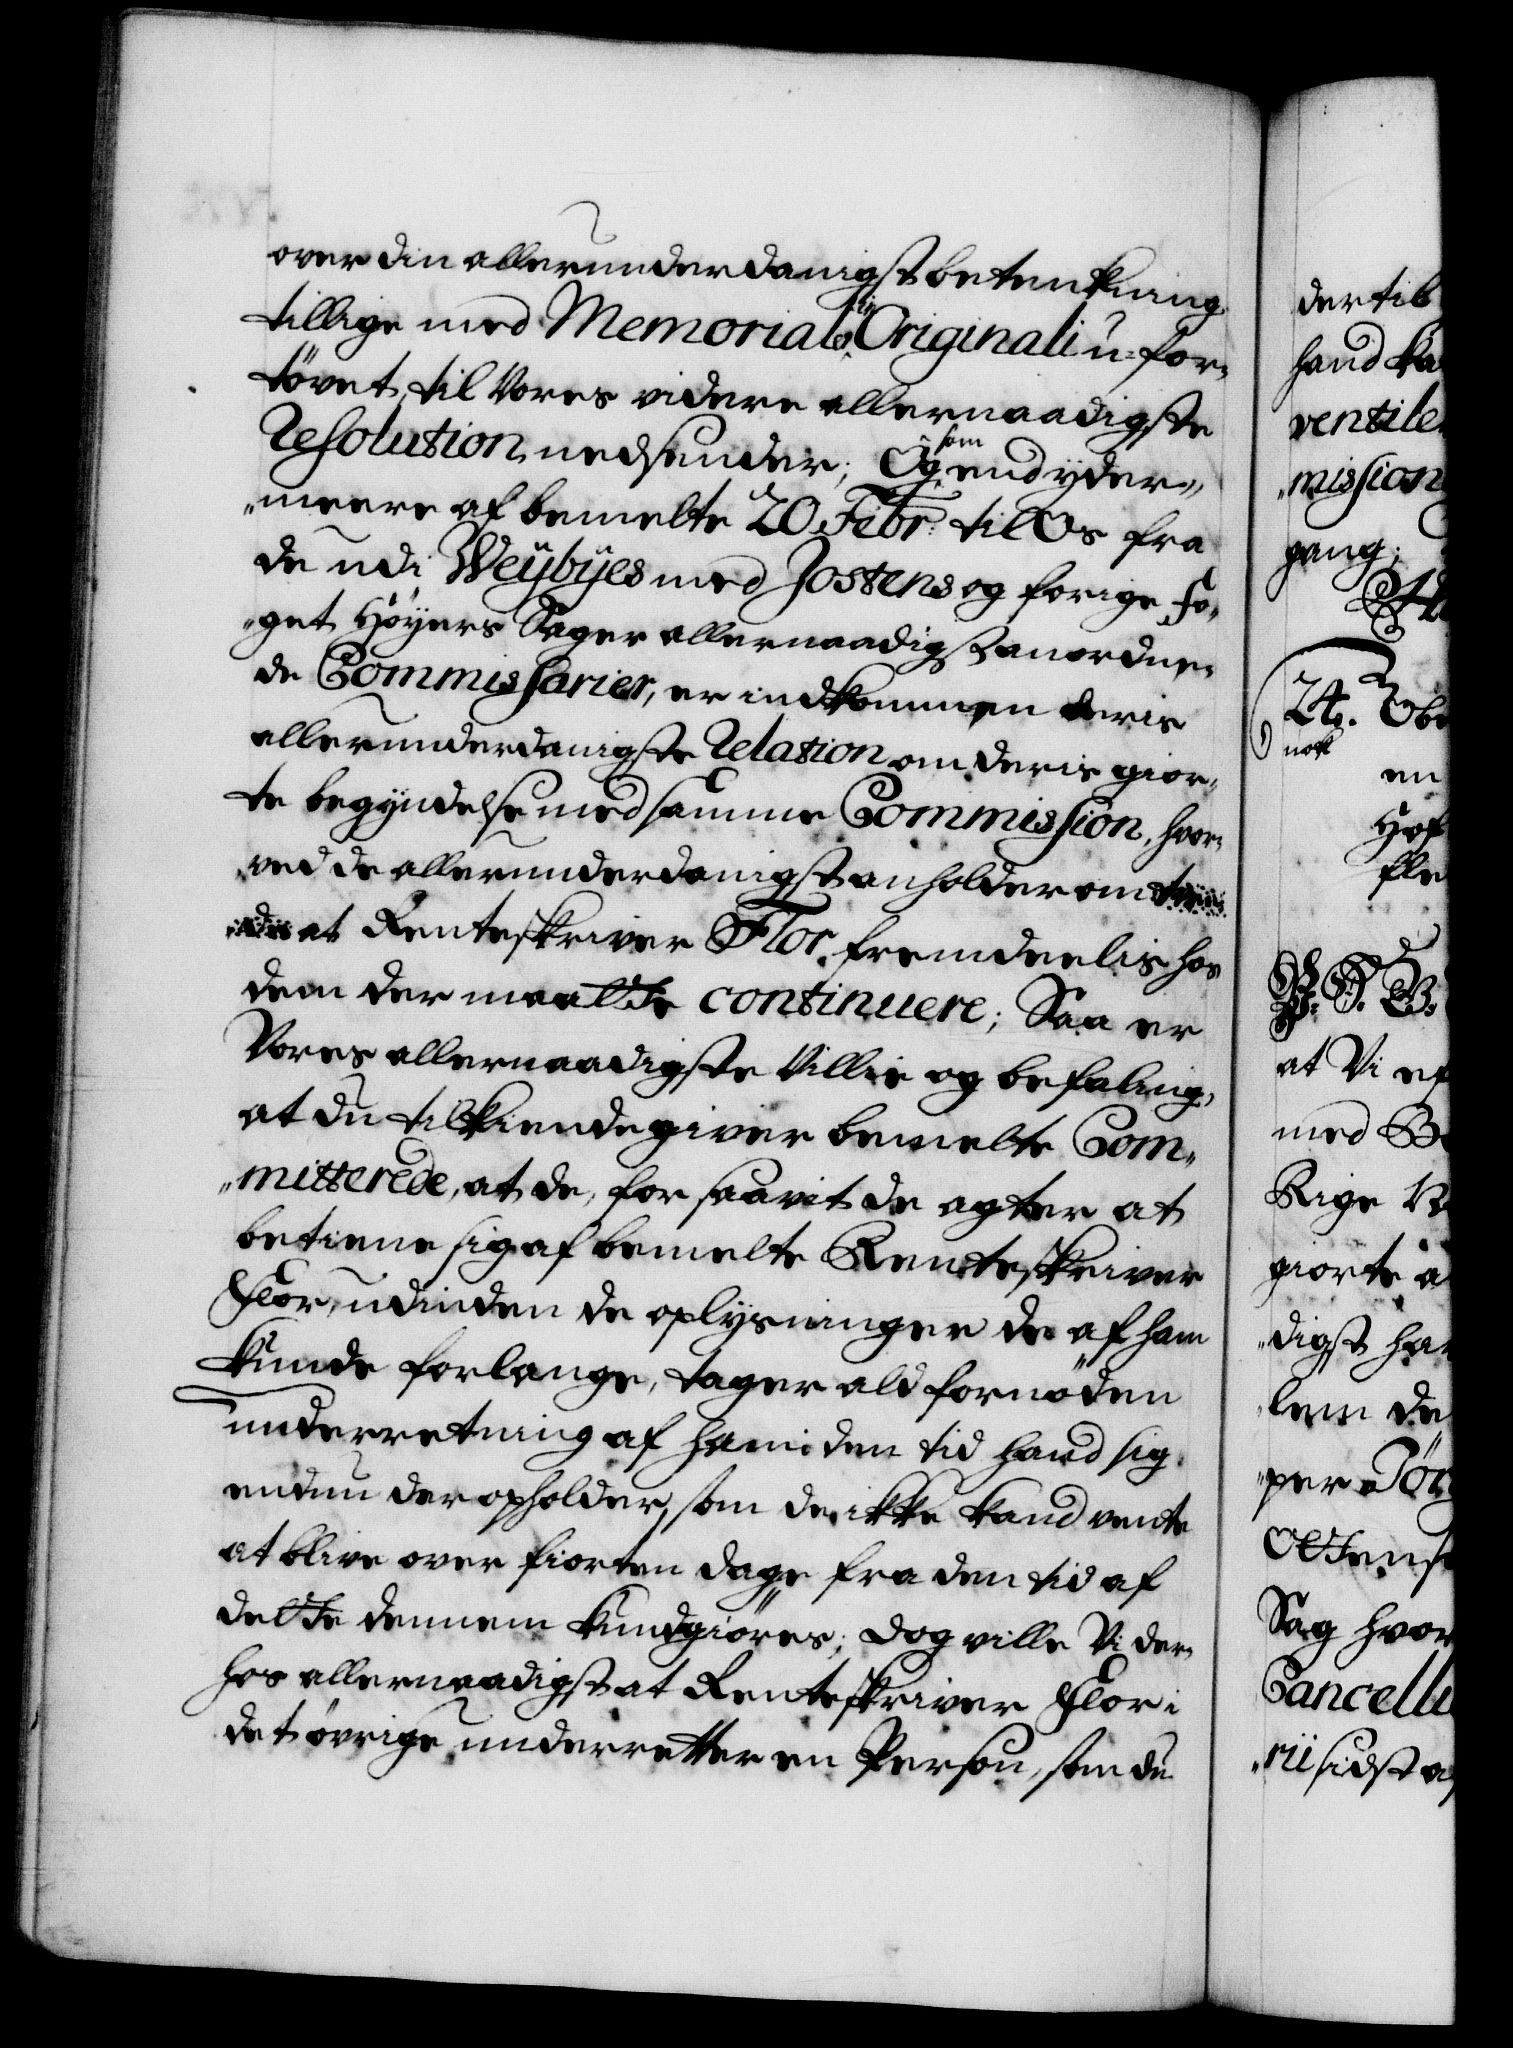 over din allerunderdanigst betenkning
tillige med Memorialet in Originali u-for-
tövet, til Vores videre allernaadigste
Resolution nedsender; Og som end yder-
"meere af bemelte 20 Febr: til Os fra
de udi Weybyes med Jostens og forige Fo-
"get Höyers Sager allernaadigst anordne-
de Commissarier, er indkommen deris
allerunderdanigste Relation om deris gior-
te begyndelse med samme Commission, hvor-
ved de allerunderdanigst anholder om
at Renteskriver Flor fremdeelis hos
dem der maatte continuere; Saa er
Vores allernaadigste Villie og befaling,
at du tilkiendegiver bemelte Com-
"mitterede, at de, for saavit de agter at
betiene sig af bemelte Renteskriver
Flor, udi den de oplysninger de af ham
kunde forlange, tager ald fornöden
underretning af ham i den tid hand sig
endnu der opholder, som de ikke kand vente
at blive over fiorten dage fra den tid af
dette dennem kundgiöres; dog ville Vi der-
hos allernaadigst at Renteskriver Flor i
det övrige underretter en Person, som du
der til
hand ka
ventile
"mission
gang;
24. Obe
nok
en
Höf
fle
P. G. V.
at Vi ef
med B
Rige N
giorte a
"digst har
lem de
"per Jör
Ottens
Sag hvor
Cancelli
"rii sidst a